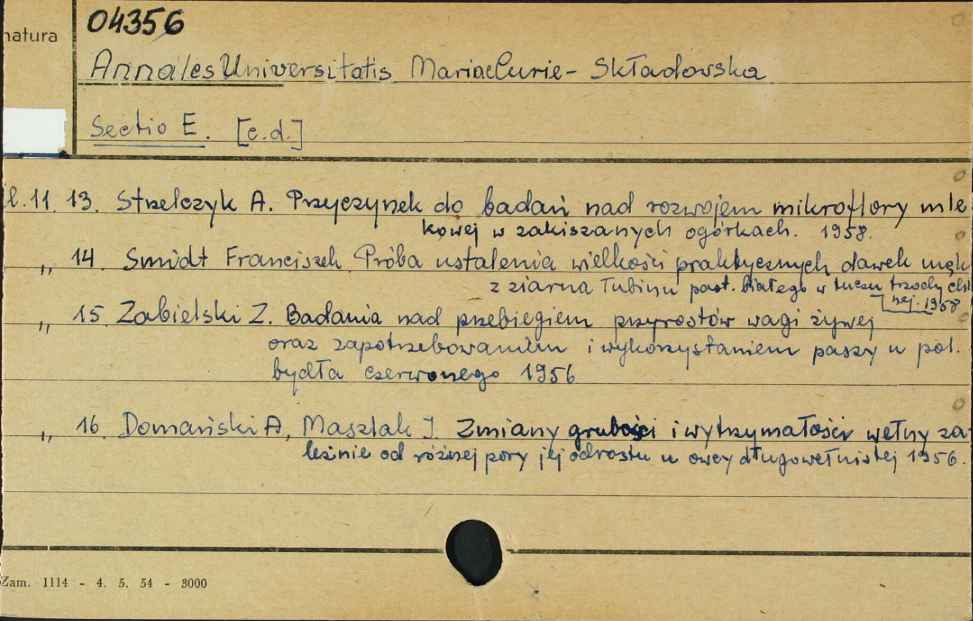 natura
04356
Annales Universitatis Mariae Curie - Składowska
Sectio E. [c.d.]
11. 13. Strelczyk A. Przyczynek do badań nad rozwojem mikroflory mle
kowej w zakiszanych ogórkach. 1958.
„ 14. Smidt Franciszek Próba ustalenia wielkości praktycznych dawek mąk
z ziarna łubinu past. białego w tuczu trzody chl
nej. 1958
„ 15. Zabielski Z. Badania nad przebiegiem przyrostów wagi żywej
oraz zapotrzebowaniem i wykorzystaniem paszy u pol.
bydła czerwonego 1956
„ 16. Domański A, Masztak J. Zmiany grubości i wytrzymałości wełny za-
leżnie od różnej pory jej odrostu u owcy długowełnistej 1956.
Zam. 1114 - 4. 5. 54 - 3000